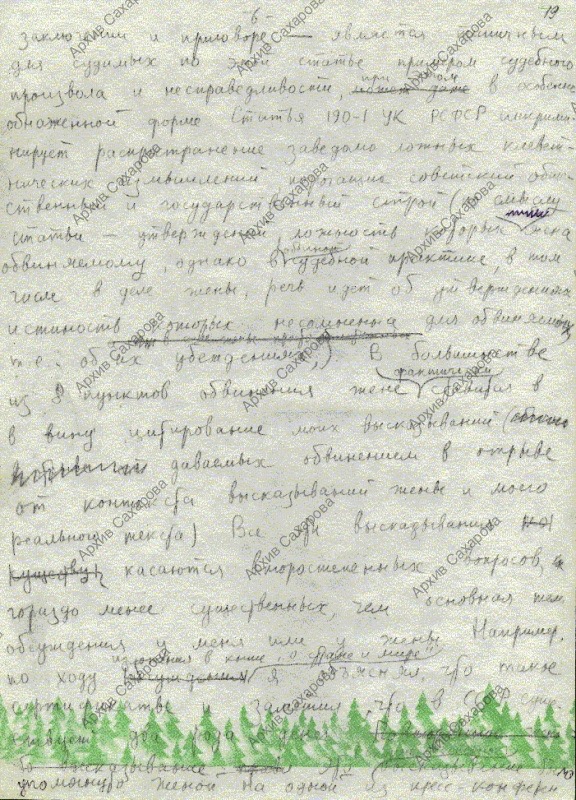 -6-
19
заключении и приговоре — является типичным
для судимых по этой статье примером судебного
произвола и несправедливости, при этом в особенно
обнаженной форме. Статья 190-1 УК РСФСР инкрими-
нирует распространение заведомо ложных клевет-
нических измышлений, порочащих советский обще-
ственный и государственный строй (по смыслу
статьи — утверждений, ложность которых ясна
обвиняемому, однако в судебной практике, в том
числе в деле жены, речь идет об утверждениях
истинность которых несомненна для обвиняемых
т.е. об их убеждениях). В большинстве
из 8 пунктов обвинения жене фактически ставится в
в вину цитирование моих высказываний
даваемых обвинением в отрыве
от контекста высказываний жены и моего
реального текста) Все эти высказывания
касаются второстепенных вопросов,
гораздо менее существенных, чем основная тема
обсуждения у меня или у жены. Например,
по ходу изложения в книге "О стране и мире" я объяснял, что такое
сертификаты и заметил, что в СССР суще-
ствует два рода денег
высказывание
упомянуто женой на одной из пресс-конферен
Архив Сахарова